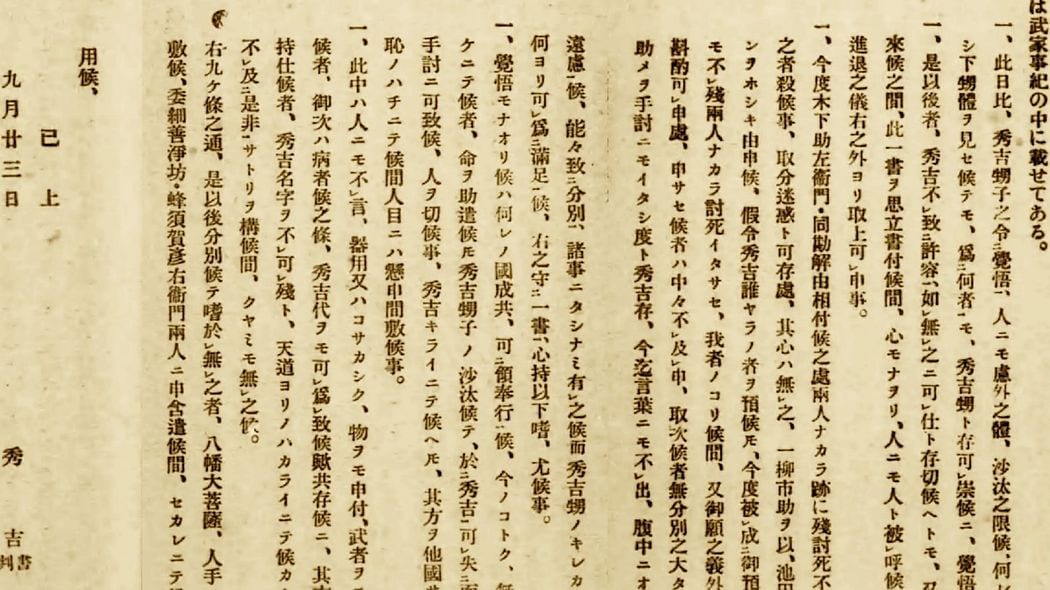 は武家事紀の中に載せてある。
一、此日比、秀吉甥子之令覺悟、人ニモ慮外之體、沙汰之限候、何レ
シ下甥體ヲ見セ候テモ、爲何者モ、秀吉甥ト存可崇候ニ、覺悟
一、是以後者、秀吉不致許容、如無之ニ可仕ト存切候ヘトモ、又
來候之間、此一書ヲ思立書付候間、心モナヲリ、人ニモ人ト被呼候
進退之儀右之外ヨリ取上可申事。
一、今度木下助左衞門・同勘解由相付候之處兩人ナカラ跡に殘討死不
之者殺候事、取分迷惑ト可存處、其心ハ無之、一柳市助ヲ以、池田
ンヲホシキ由申候、假令秀吉誰ヤラノ者ヲ預候モ、今度被成御預
モ不殘兩人ナカラ討死イタサセ、我者ノコリ候間、又御願之義外
斟酌可申處、申サセ候者ハ中々不及申、取次候者無分別之大タ
助メヲ手討ニモイタシ度ト秀吉存、今迄言葉ニモ不出、腹中ニオ
遠慮候、能々致分別、諸事ニタシナミ有之候而秀吉甥ノキレカ
何ヨリ可爲滿足候、右之守一書、心持以下嗜、尤候事。
一、覺悟モナオリ候ハ何レノ國成共、可領奉行候、今ノコトク、無
ケニテ候者、命ヲ助遣候モ秀吉甥子ノ沙汰候テ、於秀吉可失面
手討ニ可致候、人ヲ切候事、秀吉キライニテ候ヘモ、其方ヲ他國
恥ノハチニテ候間人目ニハ懸申間敷候事。
一、此中ハ人ニモ不言、器用又ハコサカシク、物ヲモ申付、武者ヲ
候者、御次ハ病者候之條、秀吉代ヲモ可爲致候歟共存候ニ、其方
持仕候者、秀吉名字ヲ不可殘ト、天道ヨリノハカライニテ候カ
不及是非サトリヲ構候間、クヤミモ無之候。
右九ケ條之通、是以後分別候テ嗜於無之者、八幡大菩薩、人手
敷候、委細善淨坊・蜂須賀彦右衞門兩人ニ申含遣候間、セカレニテ
用候、
已上
九月廿三日 秀吉 書判